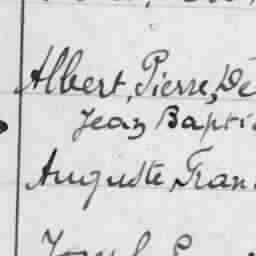 Albert, Pierre, Dé
Jean Bapti
Auguste, Fran